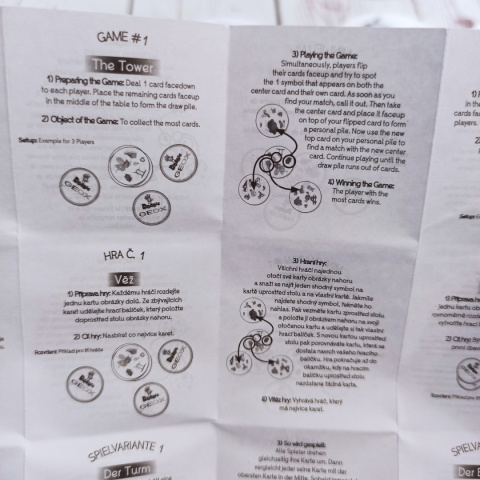 GAME #1
The Tower
1) Preparing the Game: Deal 1 card facedown
to each player. Place the remaining cards faceup
in the middle of the table to form the draw pile.
2) Object of the Game: To collect the most cards.
Setup: Example for 3 Players
GEOX
GEOX
3) Playing the Game:
Simultaneously, players flip
their cards faceup and try to spot
the 1 symbol that appears on both the
center card and their own card. As soon as you
find your match, call it out. Then take
the center card and place it faceup
on top of your flipped card to form
a personal pile. Now use the new
top card on your personal pile to
find a match with the new center
card. Continue playing until the
draw pile runs out of cards.
4) Winning the Game:
The player with the
most cards wins.
HRA Č. 1
Věž
1) Příprava hry: Každému hráči rozdejte
jednu kartu obrázky dolů. Ze zbývajících
karet udělejte hrací balíček, který položte
doprostřed stolu obrázky nahoru.
2) Cíl hry: Nasbírat co nejvíce karet.
GEOX
GEOX
3) Hraní hry:
Všichni hráči najednou
otočí své karty obrázky nahoru
a snaží se najít jeden shodný symbol na
kartě uprostřed stolu a na vlastní kartě. Jakmile
najdete shodný symbol, řekněte ho
nahlas. Pak vezměte kartu uprostřed stolu
a položte ji obrázkem nahoru na svoji
otočenou kartu a udělejte si tak vlastní
hrací balíček. S novou kartou uprostřed
stolu pak porovnáváte kartu, která se
dostala navrch vašeho hracího
balíčku. Hra pokračuje až do
okamžiku, kdy na hracím
balíčku uprostřed stolu
nezůstane žádná karta.
4) Vítěz hry: Vyhrává hráč, který
má nejvíce karet.
SPIELVARIANTE 1
Der Turm
3) So wird gespielt:
Alle Spieler drehen
gleichzeitig ihre Karte um. Dann
vergleicht jeder seine Karte mit der
obersten Karte in der Mitte.